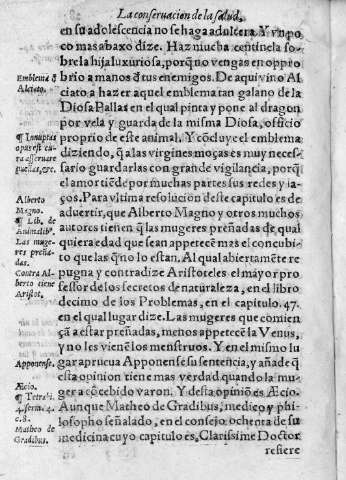 La conseruacion de la salud,
en su adolescencia no se haga adultera. Y vn po
co mas abaxo dize. Haz mucha centinela so-
bre la hija luxuriosa, porq̃ no vengas en oppro
brio a manos d̃ tus enemigos. De aqui vino Al
ciato a hazer aquel emblema tan galano de la
Diosa Pallas en el qual pinta y pone al dragon
por vela y guarda de la misma Diosa, officio
proprio de este animal. Y cõcluye el emblema
diziendo, q̃ a las virgines moças es muy neces-
sario guardarlas con grande vigilancia, porq̃
el amor tiẽde por muchas partes sus redes y la-
ços. Para vltima resolucion deste capitulo es de
aduertir, que Alberto Magno y otros muchos
autores tienen q̃ las mugeres preñadas de qual
quiera edad que sean appetecẽ mas el concubi-
to que las q̃ no lo estan. Al qual abiertamẽte re
pugna y contradize Aristoteles el mayor pro
fessor de los secretos de naturaleza, en el libro
decimo de los Problemas, en el capitulo. 47.
en el qual lugar dize. Las mugeres que comien
çã a estar preñadas, menos appetecẽ la Venus,
y no les vienẽ los menstruos. Y en el mismo lu
gar aprueua Apponense su sentencia, y añade q̃
esta opinion tiene mas verdad quando la mu-
ger a cõcebido varon. Y desta opiniõ es Æcio.
Aunque Matheo de Gradibus, medico y phi-
losopho señalado, en el consejo ochenta de su
medicina cuyo capitulo es, Clarissime Doctor
refiere
Emblema d̃
Alciato.
¶ Innuptas
opus est cu-
ra asseruare
puellas, &c.
Alberto
Magno.
¶ Lib. de
Animalib⁹.
Las muge-
res preña-
das.
Contra Al-
berto tiene
Aristot.
Apponense.
Æcio.
¶ Tetrabi.
4. serm. 4.
c. 8.
Matheo de
Gradibus.